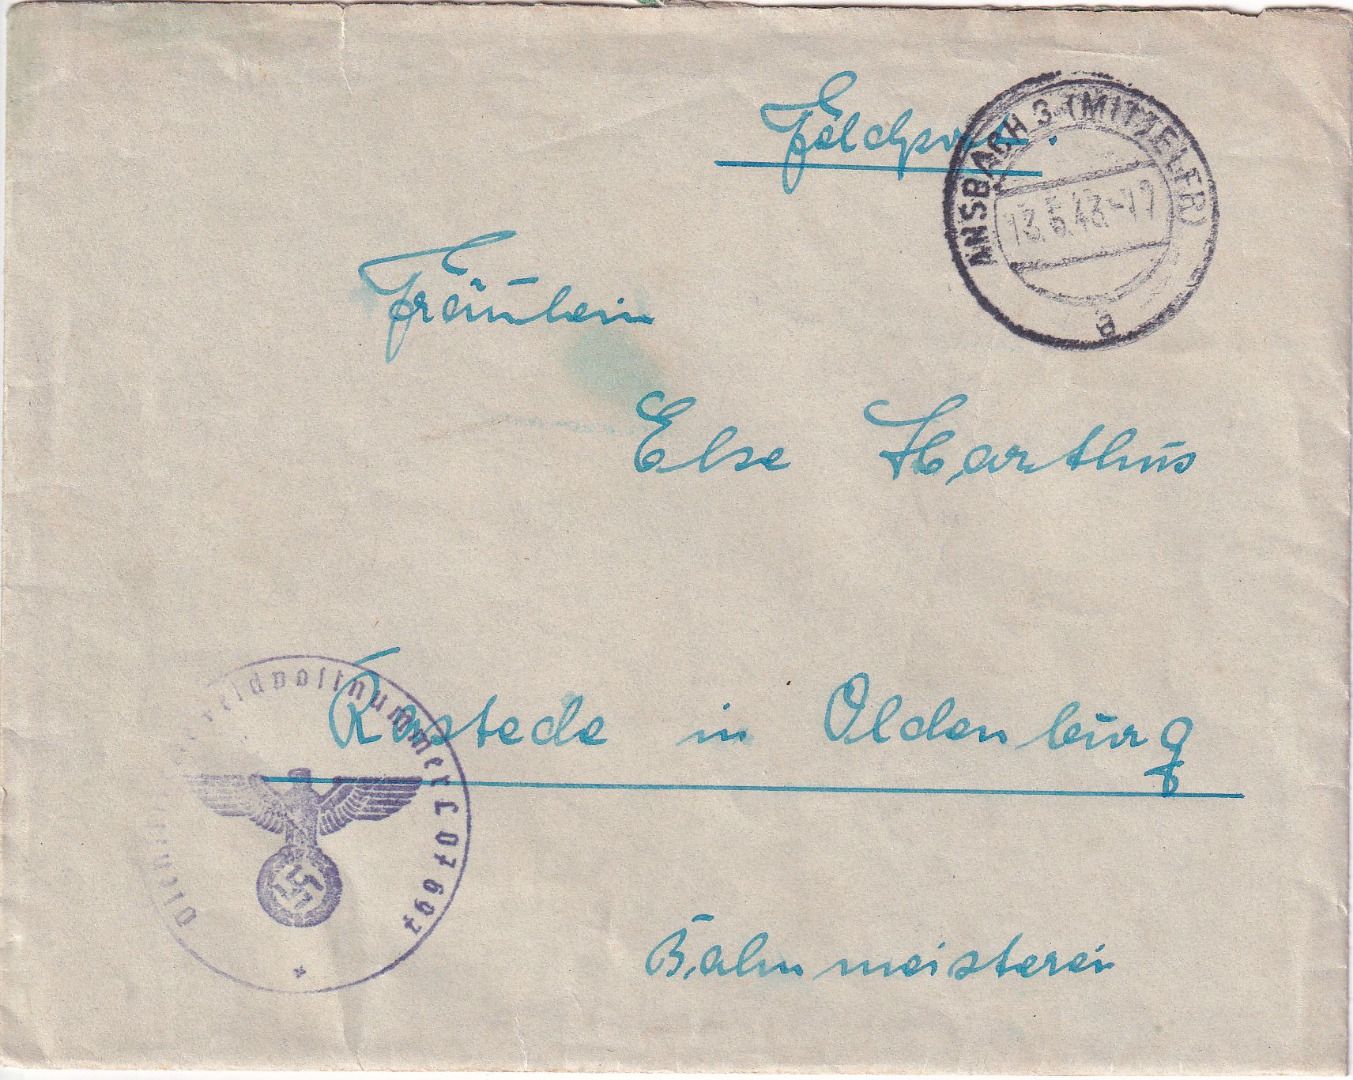 Feldpost.
ANSBACH 3 (MITTELFR)
13.5.43.-19
a
Fräulein
Else Harthus
Rastede in Oldenburg
Bahnmeisterei
Feldpostnummer L 07697